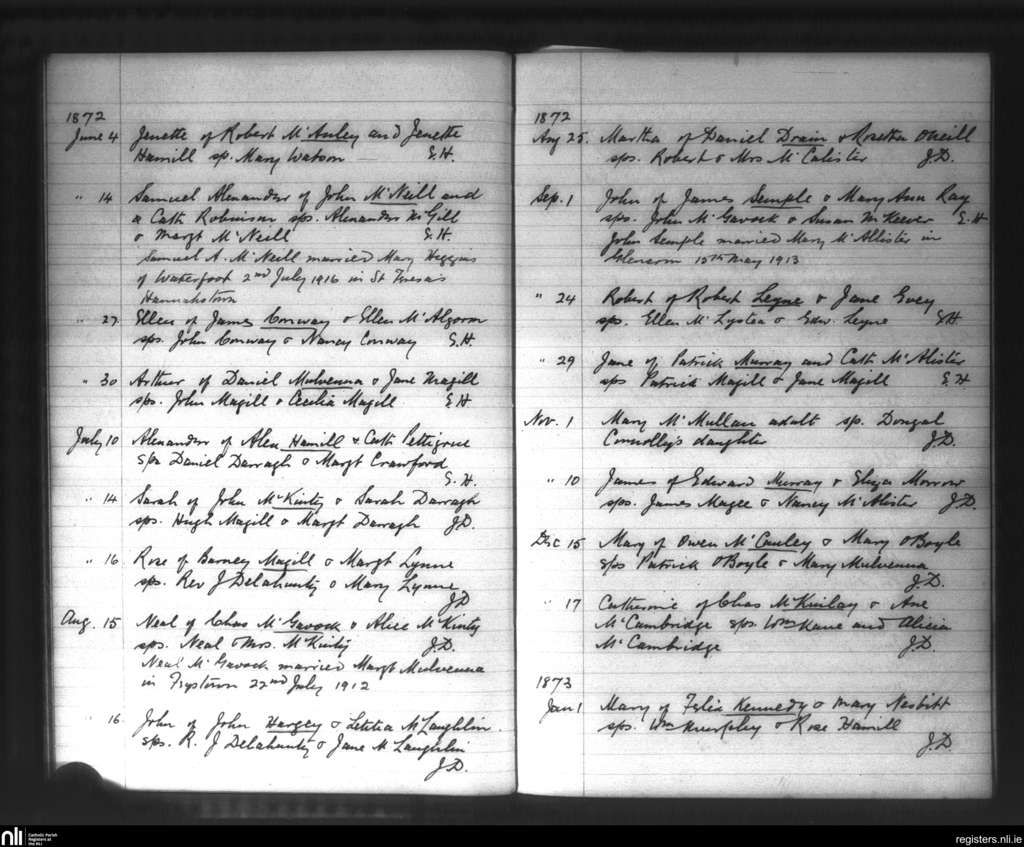 1872
June 4 Jenette of Robert McAuley and Jenette
Hamill sp. Mary Watson E.H.
" 14 Samuel Alexander of John McNeill and
a Cath Robinson sps. Alexander McGill
& Margt McNeill E.H.
Samuel A. McNeill married Mary Higgins
of Waterfoot 2nd July 1916 in St Teresa's
Hannahstown
" 27 Ellen of James Conway & Ellen McAlgorm
sps. John Conway & Nancy Conway E.H.
" 30 Arthur of Daniel Mulvenna & Jane Magill
sps. John Magill & Cecilia Magill E H
July 10 Alexander of Alex Hamill & Cath Pettigrue
sps Daniel Darragh & Margt Crawford
E. H.
" 14 Sarah of John McKinty & Sarah Darragh
sps. Hugh Magill & Margt Darragh J.D.
" 16 Rose of Barney Magill & Margt Lynne
sps. Rev J Delahunty & Mary Lynne
J.D
Aug. 15 Neal of Chas McGavock & Alice McKinty
sps. Neal & Mrs. McKinty J.D.
Neal McGavock married Margt Mulvenna
in 22nd July 1912
" 16 John of John Hargey & Letitia McLaughlin.
sps. R. J Delahunty & Jane McLaughlin
J.D.
1872
Aug 25. Martha of Daniel Drain & Rosetta O'Neill
sps. Robert & Mrs McCalister J.D.
Sep. 1 John of James Semple & Mary Ann Ray
sps. John McGavock & Susan McKeever E.H
John Semple married Mary McAllister in
Glenarm 15th May 1913
" 24 Robert of Robert Leyne & Jane Ivey
sps. Ellen & Edw. Leyne E.H.
" 29 Jane of Patrick Murray and Cath McAlister
sps Patrick Magill & Jane Magill E.H
Nov. 1 Mary McMullan adult sp. Dongal
Connolly's daughter J.D.
" 10 James of Edward Murray & Eliza Morrow
sps. James Magee & Nancy McAlister J.D.
Dec 15 Mary of Owen McCauley & Mary O'Boyle
sps Patrick O'Boyle & Mary Mulvenna
J.D.
" 17 Catherine of Chas McKinlay & Ane
McCambridge sps. Wm Kane and Alicia
McCambridge J.D.
1873
Jan 1 Mary of Felix Kennedy & Mary Nesbitt
sps. Wm Murphy & Rose Hamill
J.D
nli Catholic Parish
Registers at
the NLI
registers.nli.ie